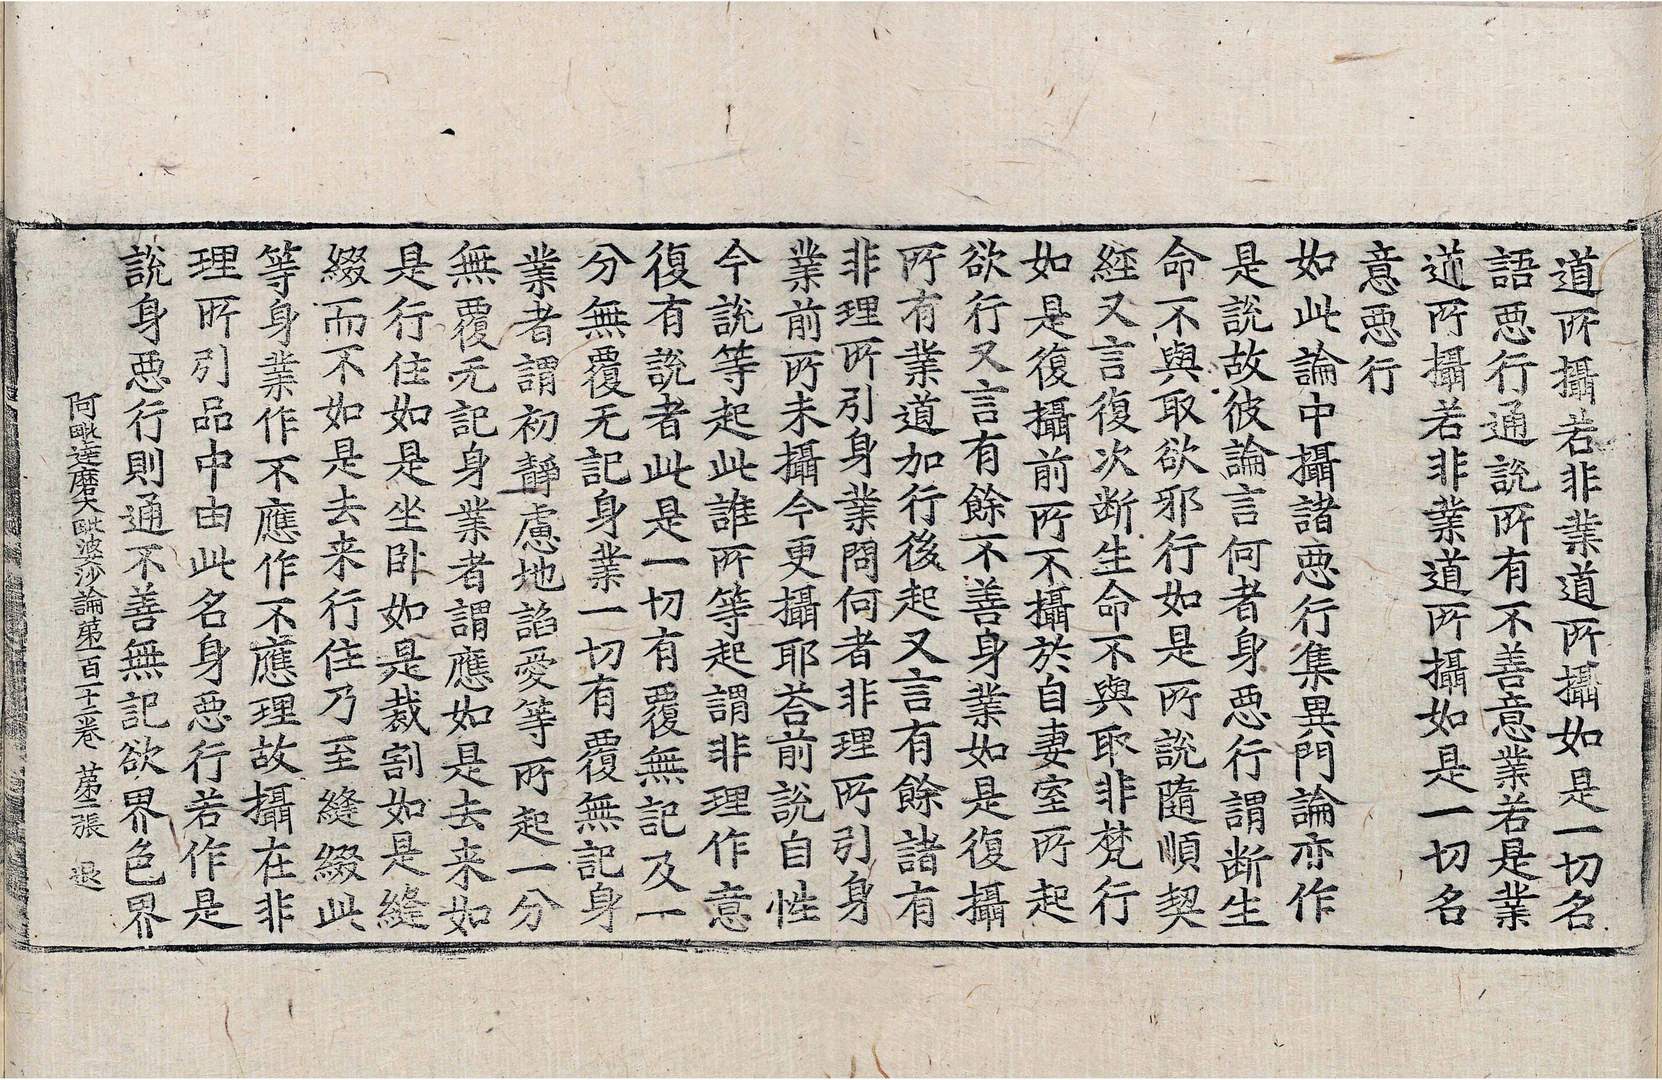 道所攝若非業道所攝如是一切名
語惡行通說所有不善意業若是業
道所攝若非業道所攝如是一切名
意惡行
如此論中攝諸惡行集異門論亦作
是說故彼論言何者身惡行謂斷生
命不與取欲邪行如是所說隨順契
經又言復次断生命不與取非梵行
如是復攝前所不攝於自妻室所起
欲行又言有餘不善身業如是復攝
所有業道加行後起又言有餘諸有
非理所引身業問何者非理所引身
業前所未攝今更攝耶荅前說自性
今說等起此誰所等起謂非理作意
復有說者此是一切有覆無記及一
分無覆无記身業一切有覆無記身
業者謂初靜慮地諂愛等所起一分
無覆无記身業者謂應如是去来如
是行住如是坐卧如是裁割如是縫
綴而不如是去来行住乃至縫綴此
等身業作不應作不應理故攝在非
理所引品中由此名身惡行若作是
說身惡行則通不善無記欲界色界
阿毗達磨大毗婆沙論第一百一十二卷 第二張 退